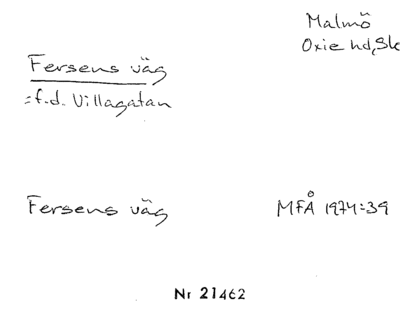 Malmö
Oxie hd, Sk
Fersens väg
= f.d. Villagatan
Fersens väg MFÅ 1974:39
Nr 21462